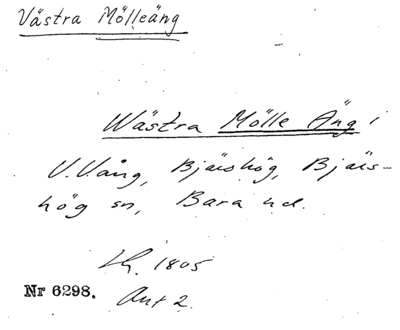 Västra Mölleäng
Wästra Mölle Äng i
V. Vång, Bjäishög, Bjäis-
hög sn, Bara hd.
Lh. 1805
Nr 6298. Akt 2.